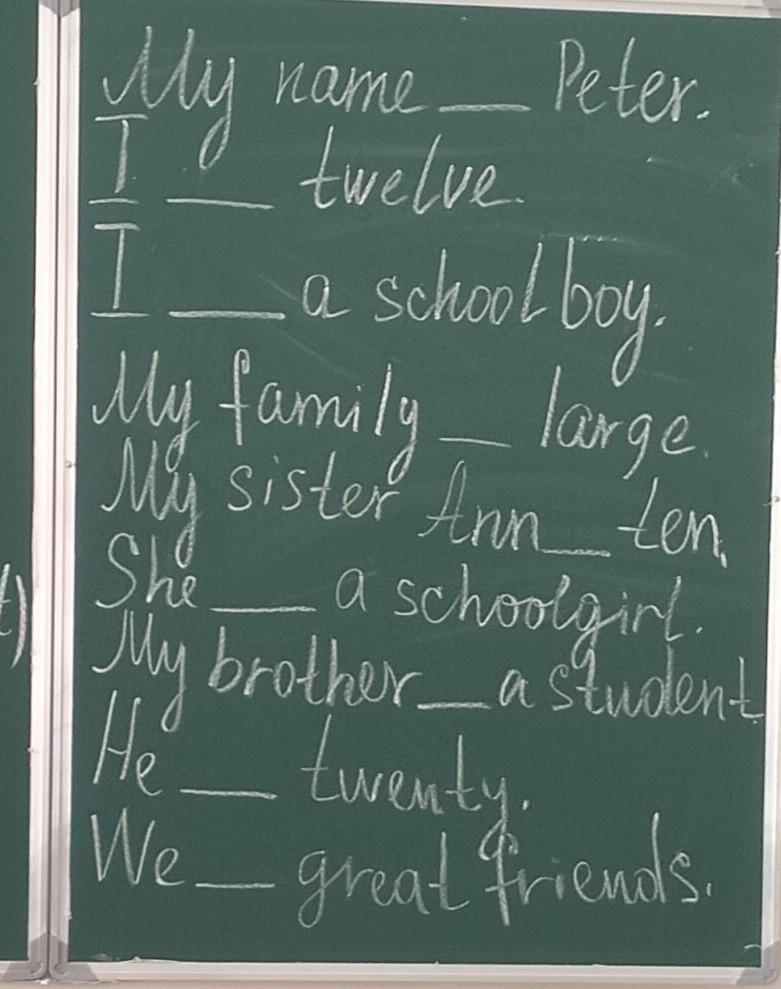 My name __ Peter.
I __ twelve.
I __ a schoolboy.
My family __ large.
My sister Ann __ ten.
She __ a schoolgirl.
My brother __ a student
He __ twenty.
We __ great friends.
t)